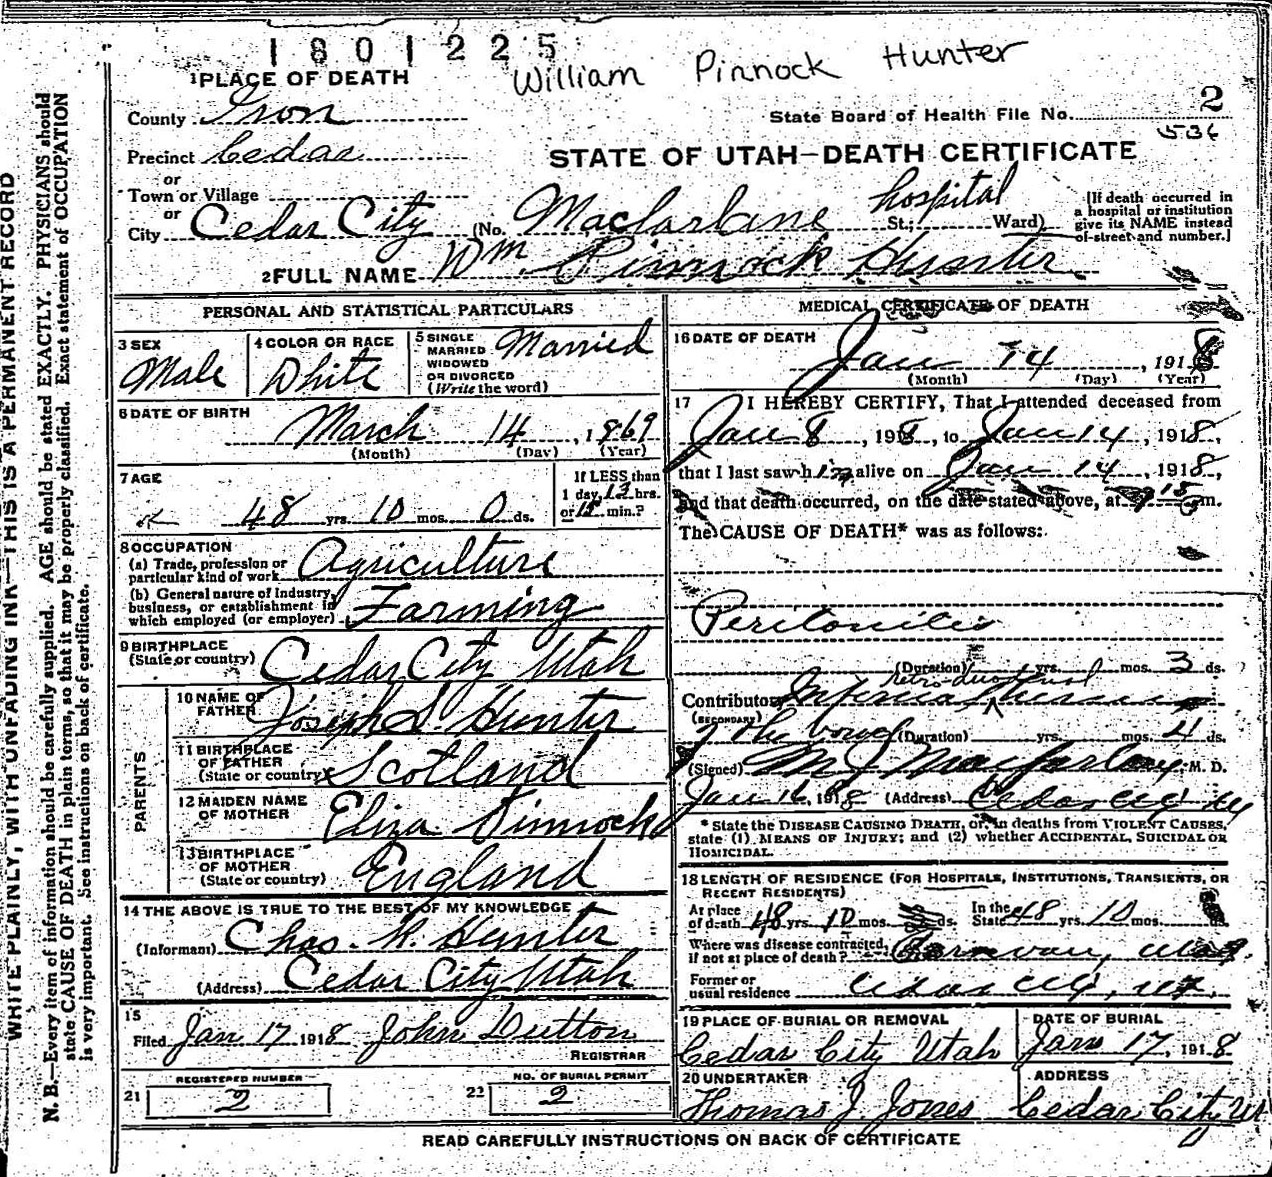 1801225
William Pinnock Hunter
1 PLACE OF DEATH
County Iron
State Board of Health File No. 2
536
Precinct Cedar
STATE OF UTAH—DEATH CERTIFICATE
or
Town or Village
or
City Cedar City (No. Macfarlane hospital St.; Ward)
[If death occurred in a hospital or institution give its NAME instead of street and number.]
2 FULL NAME Wm. Pinnock Hunter
PERSONAL AND STATISTICAL PARTICULARS
3 SEX
Male
4 COLOR OR RACE
White
5 SINGLE MARRIED WIDOWED OR DIVORCED (Write the word)
Married
6 DATE OF BIRTH
March 14, 1869
(Month) (Day) (Year)
7 AGE
48 yrs. 10 mos. 0 ds.
If LESS than
1 day, 13 hrs.
or 15 min.?
8 OCCUPATION
(a) Trade, profession or particular kind of work Agriculture
(b) General nature of Industry, business, or establishment in which employed (or employer) Farming
9 BIRTHPLACE
(State or country) Cedar City Utah
PARENTS
10 NAME OF FATHER Joseph S. Hunter
11 BIRTHPLACE OF FATHER (State or country) Scotland
12 MAIDEN NAME OF MOTHER Eliza Pinnock
13 BIRTHPLACE OF MOTHER (State or country) England
14 THE ABOVE IS TRUE TO THE BEST OF MY KNOWLEDGE
(Informant) Chas. R. Hunter
(Address) Cedar City Utah
15
Filed Jan 17 1918 John Dutton
REGISTRAR
21 REGISTERED NUMBER
2
22 NO. OF BURIAL PERMIT
2
MEDICAL CERTIFICATE OF DEATH
16 DATE OF DEATH
Jan 14, 1918
(Month) (Day) (Year)
17 I HEREBY CERTIFY, That I attended deceased from
Jan 8, 1918, to Jan 14, 1918,
that I last saw him alive on Jan 14, 1918,
and that death occurred, on the date stated above, at 9 15 m.
The CAUSE OF DEATH* was as follows:
Peritonitis
(Duration) yrs. mos. 3 ds.
retro-duodenal
Contributory Internal
(SECONDARY)
of the bowel (Duration) yrs. mos. 4 ds.
(Signed) M J Macfarlane, M. D.
Jan 16, 1918 (Address) Cedar City Ut
* State the DISEASE CAUSING DEATH, or, in deaths from VIOLENT CAUSES, state (1) MEANS OF INJURY; and (2) whether ACCIDENTAL, SUICIDAL OR HOMICIDAL.
18 LENGTH OF RESIDENCE (FOR HOSPITALS, INSTITUTIONS, TRANSIENTS, OR RECENT RESIDENTS)
At place of death 48 yrs. 10 mos. ds. In the State 48 yrs. 10 mos.
Where was disease contracted, if not at place of death?
Former or usual residence Cedar City, Ut.
19 PLACE OF BURIAL OR REMOVAL
Cedar City Utah
DATE OF BURIAL
Jan 17, 1918
20 UNDERTAKER
Thomas J. Jones
ADDRESS
Cedar City Ut
READ CAREFULLY INSTRUCTIONS ON BACK OF CERTIFICATE
WRITE PLAINLY, WITH UNFADING INK—THIS IS A PERMANENT RECORD
N. B.—Every item of information should be carefully supplied. AGE should be stated EXACTLY. PHYSICIANS should
state CAUSE OF DEATH in plain terms, so that it may be properly classified. Exact statement of OCCUPATION
is very important. See instructions on back of certificate.